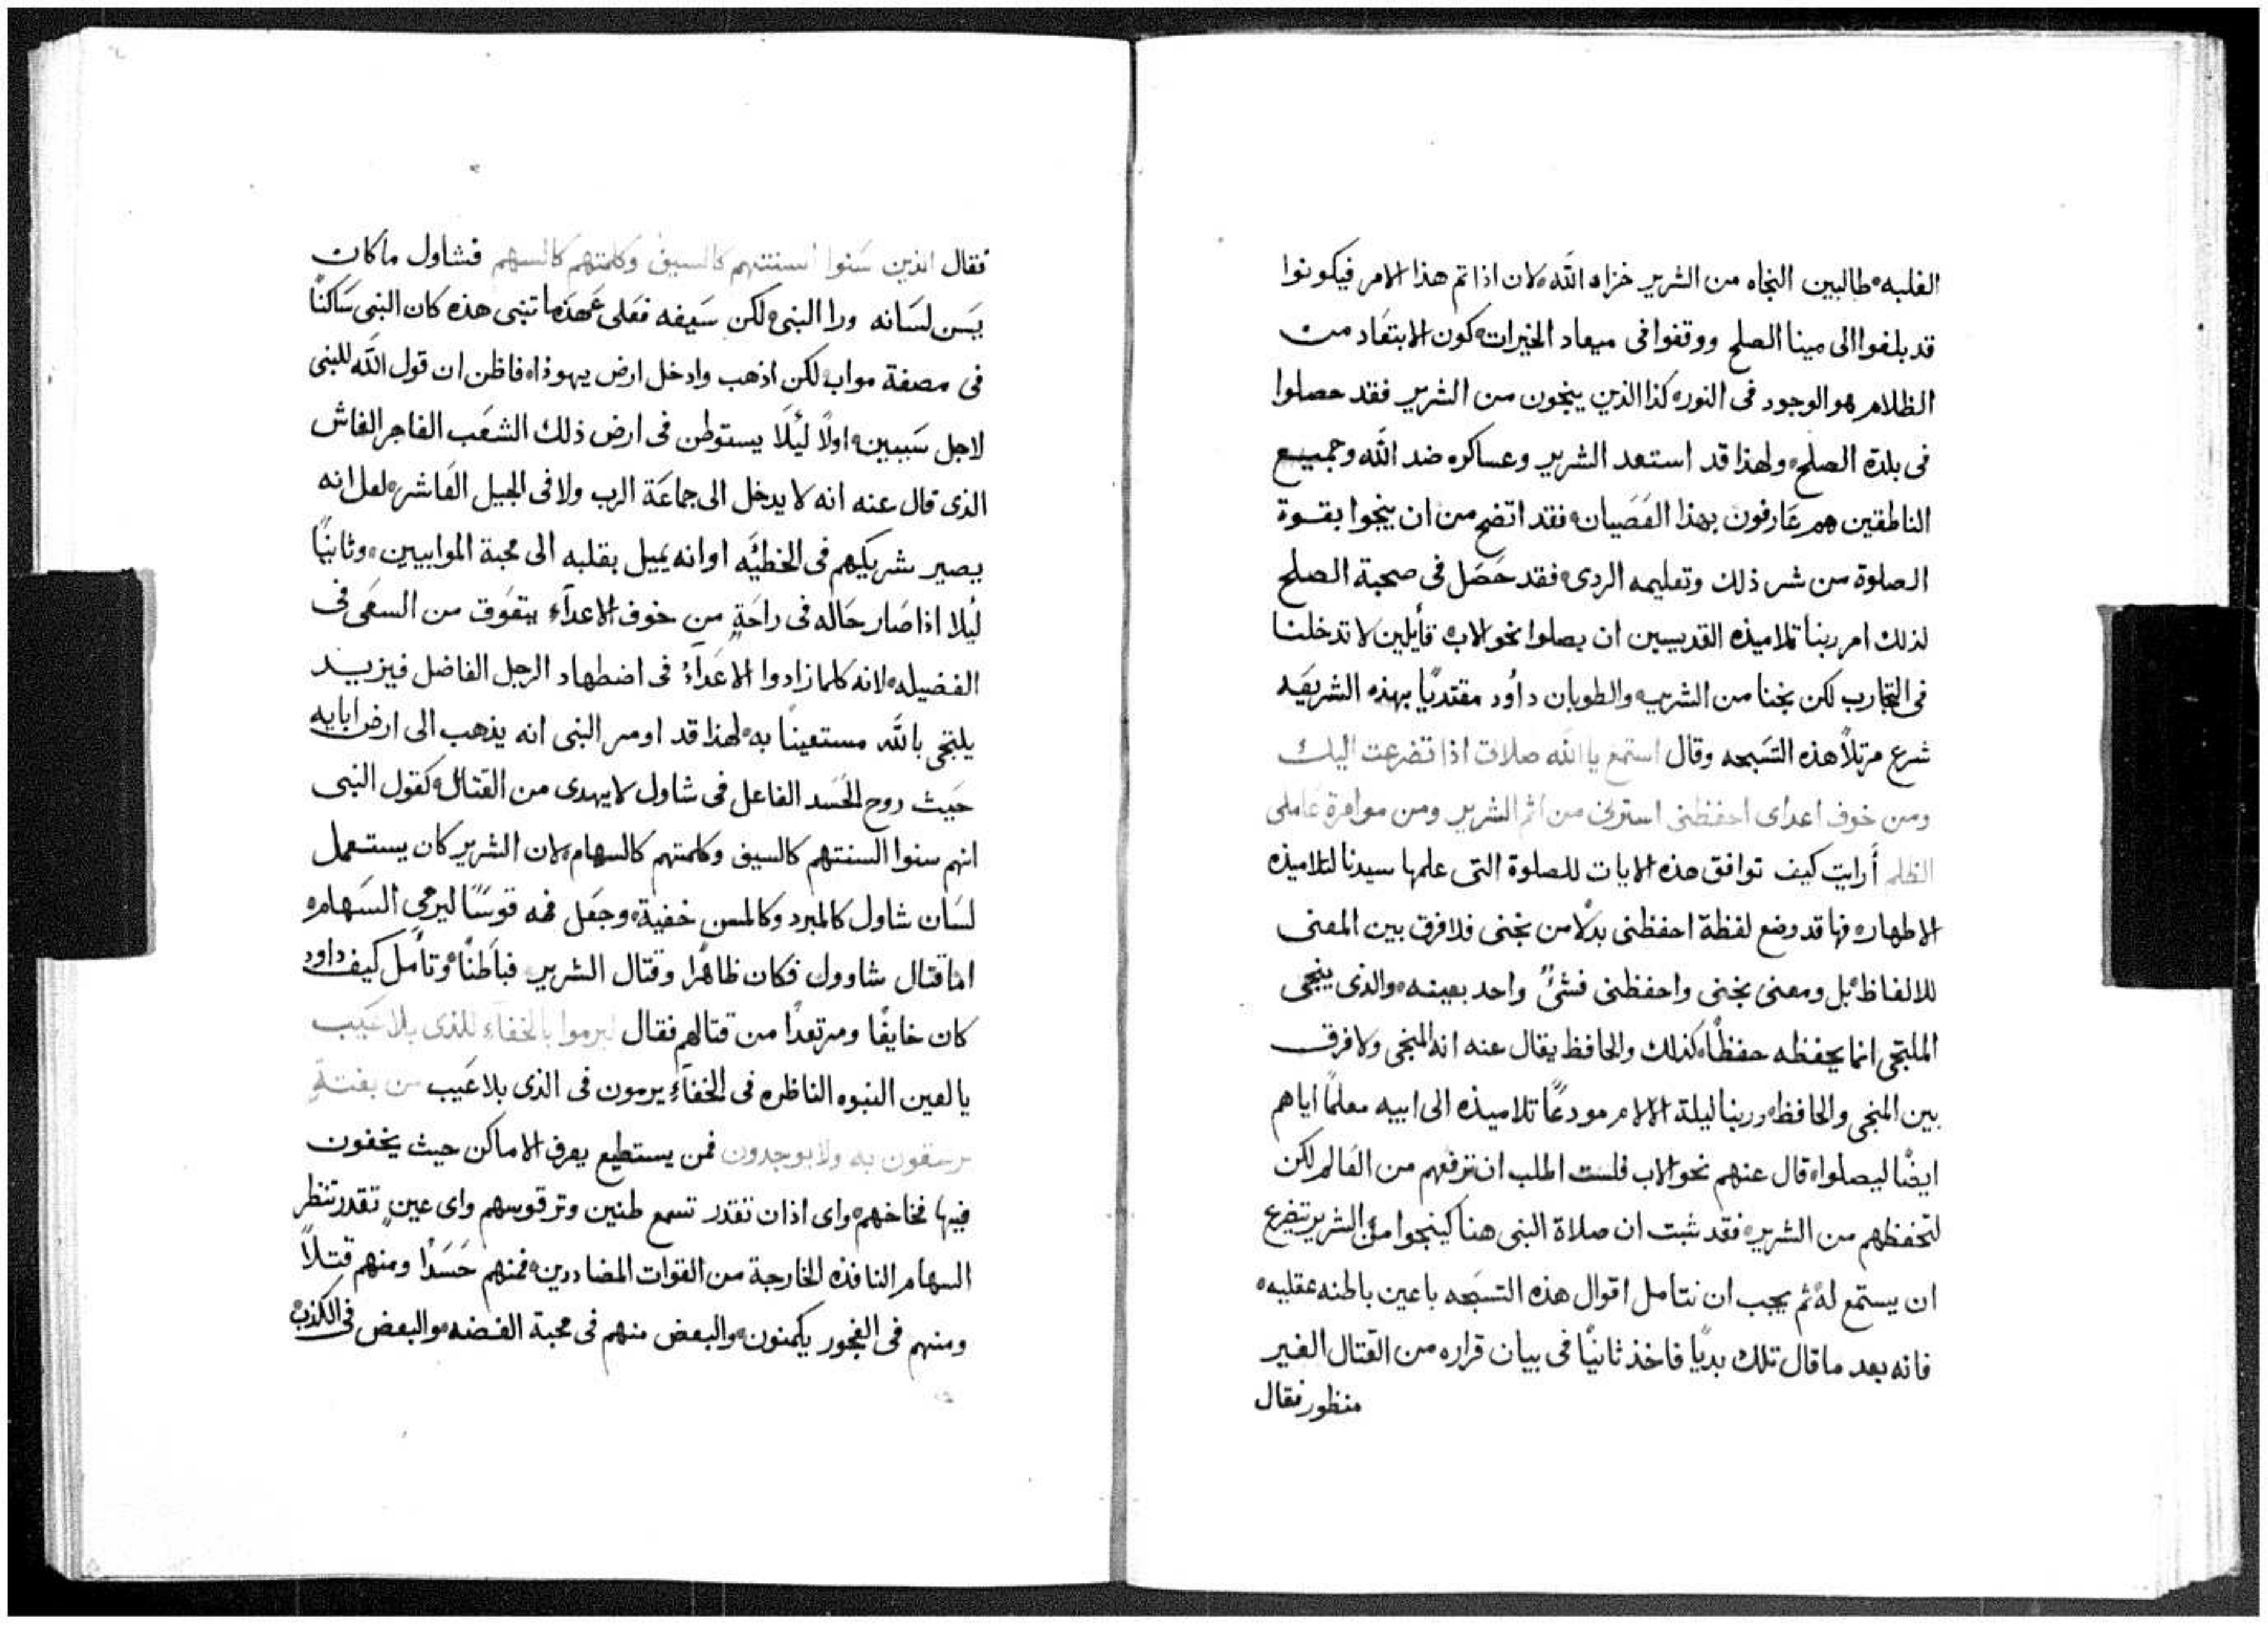 الغلبه، طالبين النجاه من الشرير خزاه الله، لان اذا تم هذا الامر فيكونوا
قد بلغوا الى مينا الصلح ووقفوا فى ميعاد الخيرات، كون الابتعاد من
الظلام هو الوجود فى النور، كذا الذين ينجون من الشرير فقد حصلوا
فى بلدة الصلح، ولهذا قد استعد الشرير وعساكره ضد الله وجميع
الناطقين هم عَارفون بهذا العَصَيان، فقد اتضح من ان ينجوا بقوة
الصلوة من شر ذلك وتعليمه الردى، فقد حَصَل فى صحبة الصلح
لذلك امر ربنا تلاميذه القديسين ان يصلوا نحو الاب قآيلين لا تدخلنا
فى التجارب لكن نجنا من الشرير، والطوبان داوُد مقتديًا بهذه الشريعَه
شرع مرتلاً هذه التسَبحه وقال استمع يا الله صلاتى اذا تضرعت اليك
ومن خوف اعداى احفظنى استرنى من اثم الشرير ومن موامرة عَاملى
الظلم أرايت كيف توافق هذه الايات للصلوة التى علمها سيدنا لتلاميذه
الاطهار، فها قد وضع لفظة احفظنى بدلاً من نجنى فلا فرق بين المعنى
للالفاظ، بل ومعنى نجنى واحفظنى فشىءٌ واحد بعينه، والذى ينجى
الملتجى انما يحفظه حفظاً، كذلك والحافظ يقال عنه انه المنجى ولا فرق
بين المنجى والحافظ، وربنا ليلة الالام مودعًا تلاميذه الى ابيه معلماً اياهم
ايضًا ليصلوا، قال عنهم نحو الاب فلست اطلب ان ترفعهم من العَالم لكن
لتحفظهم من الشرير، فقد ثبت ان صلاة النبى هنا كينجوا من الشرير يتضرع
ان يستمع له، ثم يجب ان نتامل اقوال هذه التسَبحه باعين باطنه عقليه،
فانه بعد ما قال تلك بديًا فاخذ ثانيًا فى بيان قراره من القتال الغير
منظور فقال
فقال الذين سَنوا السنتهم كالسيف وكلمتهم كالسهم فشاول ما كان
يَسَن لسَانه ورا النبى، لكن سَيفه فعَلى عَهد ما تنبى هذه كان النبى سَاكنًا
فى مصفة مواب، لكن اذهب وادخل ارض يهوذا، فاظن ان قول الله للنبى
لاجل سَببين، اولاً ليَلاَ يستوطن فى ارض ذلك الشعَب الفاجر الفاش
الذى قال عنه انه لا يدخل الى جماعَة الرب ولا فى الجيل العَاشر، لعل انه
يصير شريكهم فى الخطيَه او انه يميل بقلبه الى محبة الموابيين، وثانيًا
ليلا اذا صَار حَاله فى راحَةٍ من خوف الاعدآء يتعَوق من السعَى فى
الفضيله، لانه كلما زادوا الاعَدآءُ فى اضطهاد الرجل الفاضل فيزيد
يلتجى بالله مستعينًا به، لهذا قد اومر النبى انه يذهب الى ارض ابايه
حَيث روح الحَسَد الفاعل فى شاول لا يهدى من القتال، كقول النبى
انهم سنوا السنتهم كالسيف وكلمتهم كالسهام، لان الشرير كان يستعمل
لسَان شاول كالمبرد وكالمسن خفية، وجعَل فمه قوسًا ليرمى السَهام،
اما قتال شاوول فكان ظاهًرا وقتال الشرير فباَطنًا، وتأمل كيف داود
كان خايفًا ومرتعدًا من قتالهم فقال ليرموا بالخفآء للذى بلا عَيب
يالعين النبوه الناظره فى الخفآءِ يرمون فى الذى بلا عَيب من بغتةٍ
يرسقون به ولا يوجدون فمن يستطيع يعرف الاماكن حيث يخفون
فيها فخاخهم، واى اذان تقدر تسمع طنين وتر قوسهم واى عينٍ تقدر تنظر
السهام النافذه الخارجة من القوات المضاددين، فمنهم حَسَدًا ومنهم قتلاً
ومنهم فى الفجور يكمنون، والبعض منهم فى محبة الفضه، والبعض فى الكذب،